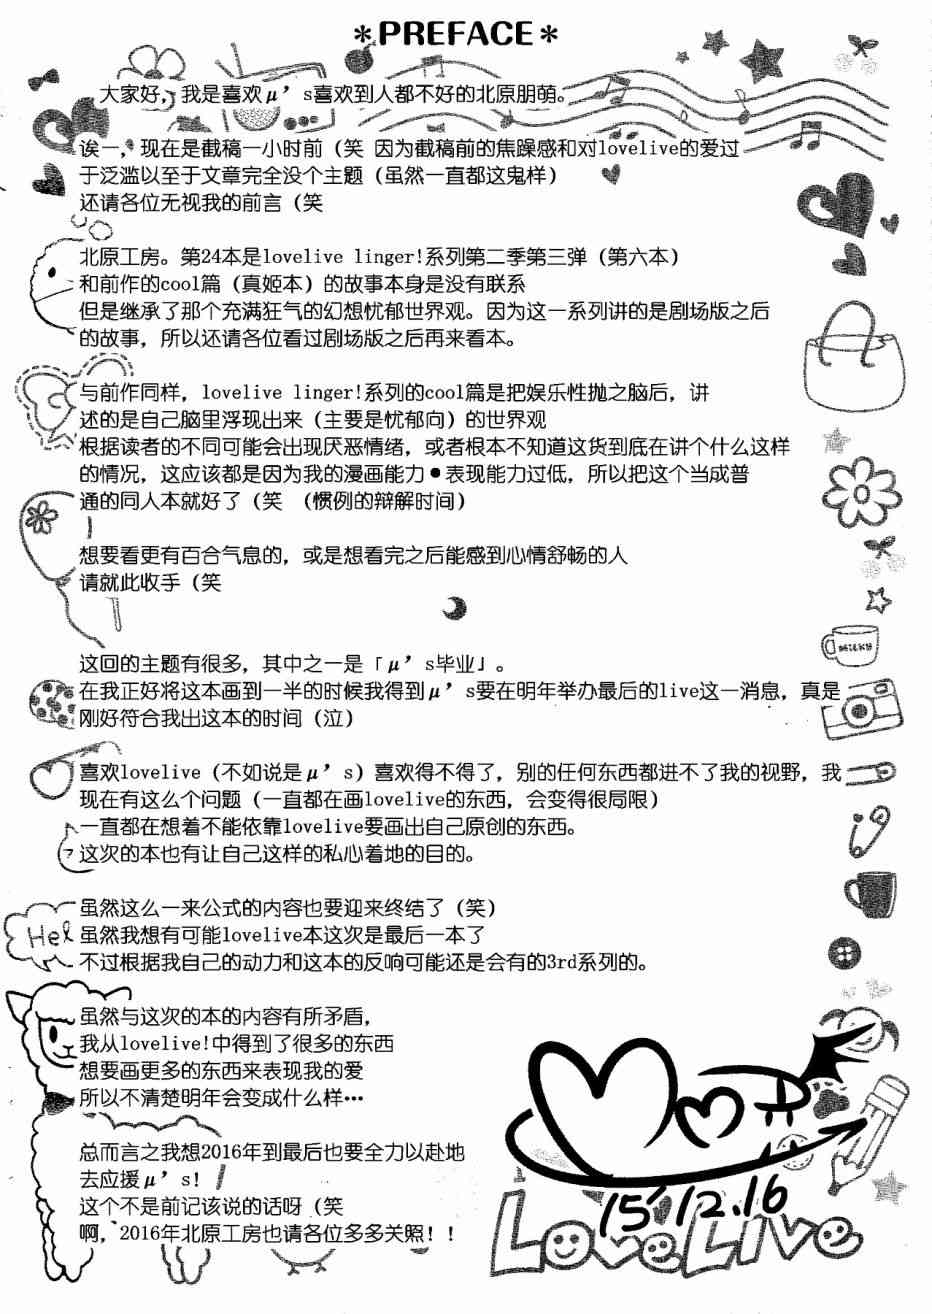 *PREFACE*
大家好，我是喜欢μ’s喜欢到人都不好的北原朋萌。
诶一，现在是截稿一小时前（笑 因为截稿前的焦躁感和对lovelive的爱过
于泛滥以至于文章完全没个主题（虽然一直都这鬼样）
还请各位无视我的前言（笑
北原工房。第24本是lovelive linger!系列第二季第三弹（第六本）
和前作的cool篇（真姬本）的故事本身是没有联系
但是继承了那个充满狂气的幻想忧郁世界观。因为这一系列讲的是剧场版之后
的故事，所以还请各位看过剧场版之后再来看本。
与前作同样，lovelive linger!系列的cool篇是把娱乐性抛之脑后，讲
述的是自己脑里浮现出来（主要是忧郁向）的世界观
根据读者的不同可能会出现厌恶情绪，或者根本不知道这货到底在讲个什么这样
的情况，这应该都是因为我的漫画能力●表现能力过低，所以把这个当成普
通的同人本就好了（笑 （惯例的辩解时间）
想要看更有百合气息的，或是想看完之后能感到心情舒畅的人
请就此收手（笑
这回的主题有很多，其中之一是「μ’s毕业」。
在我正好将这本画到一半的时候我得到μ’s要在明年举办最后的live这一消息，真是
刚好符合我出这本的时间（泣）
MILKY
喜欢lovelive（不如说是μ’s）喜欢得不得了，别的任何东西都进不了我的视野，我
现在有这么个问题（一直都在画lovelive的东西，会变得很局限）
一直都在想着不能依靠lovelive要画出自己原创的东西。
这次的本也有让自己这样的私心着地的目的。
虽然这么一来公式的内容也要迎来终结了（笑）
Hel 虽然我想有可能lovelive本这次是最后一本了
不过根据我自己的动力和这本的反响可能还是会有的3rd系列的。
虽然与这次的本的内容有所矛盾，
我从lovelive!中得到了很多的东西
想要画更多的东西来表现我的爱
所以不清楚明年会变成什么样…
总而言之我想2016年到最后也要全力以赴地
去应援μ’s!
这个不是前记该说的话呀（笑
啊，2016年北原工房也请各位多多关照！！
15'12.16
LoveLive